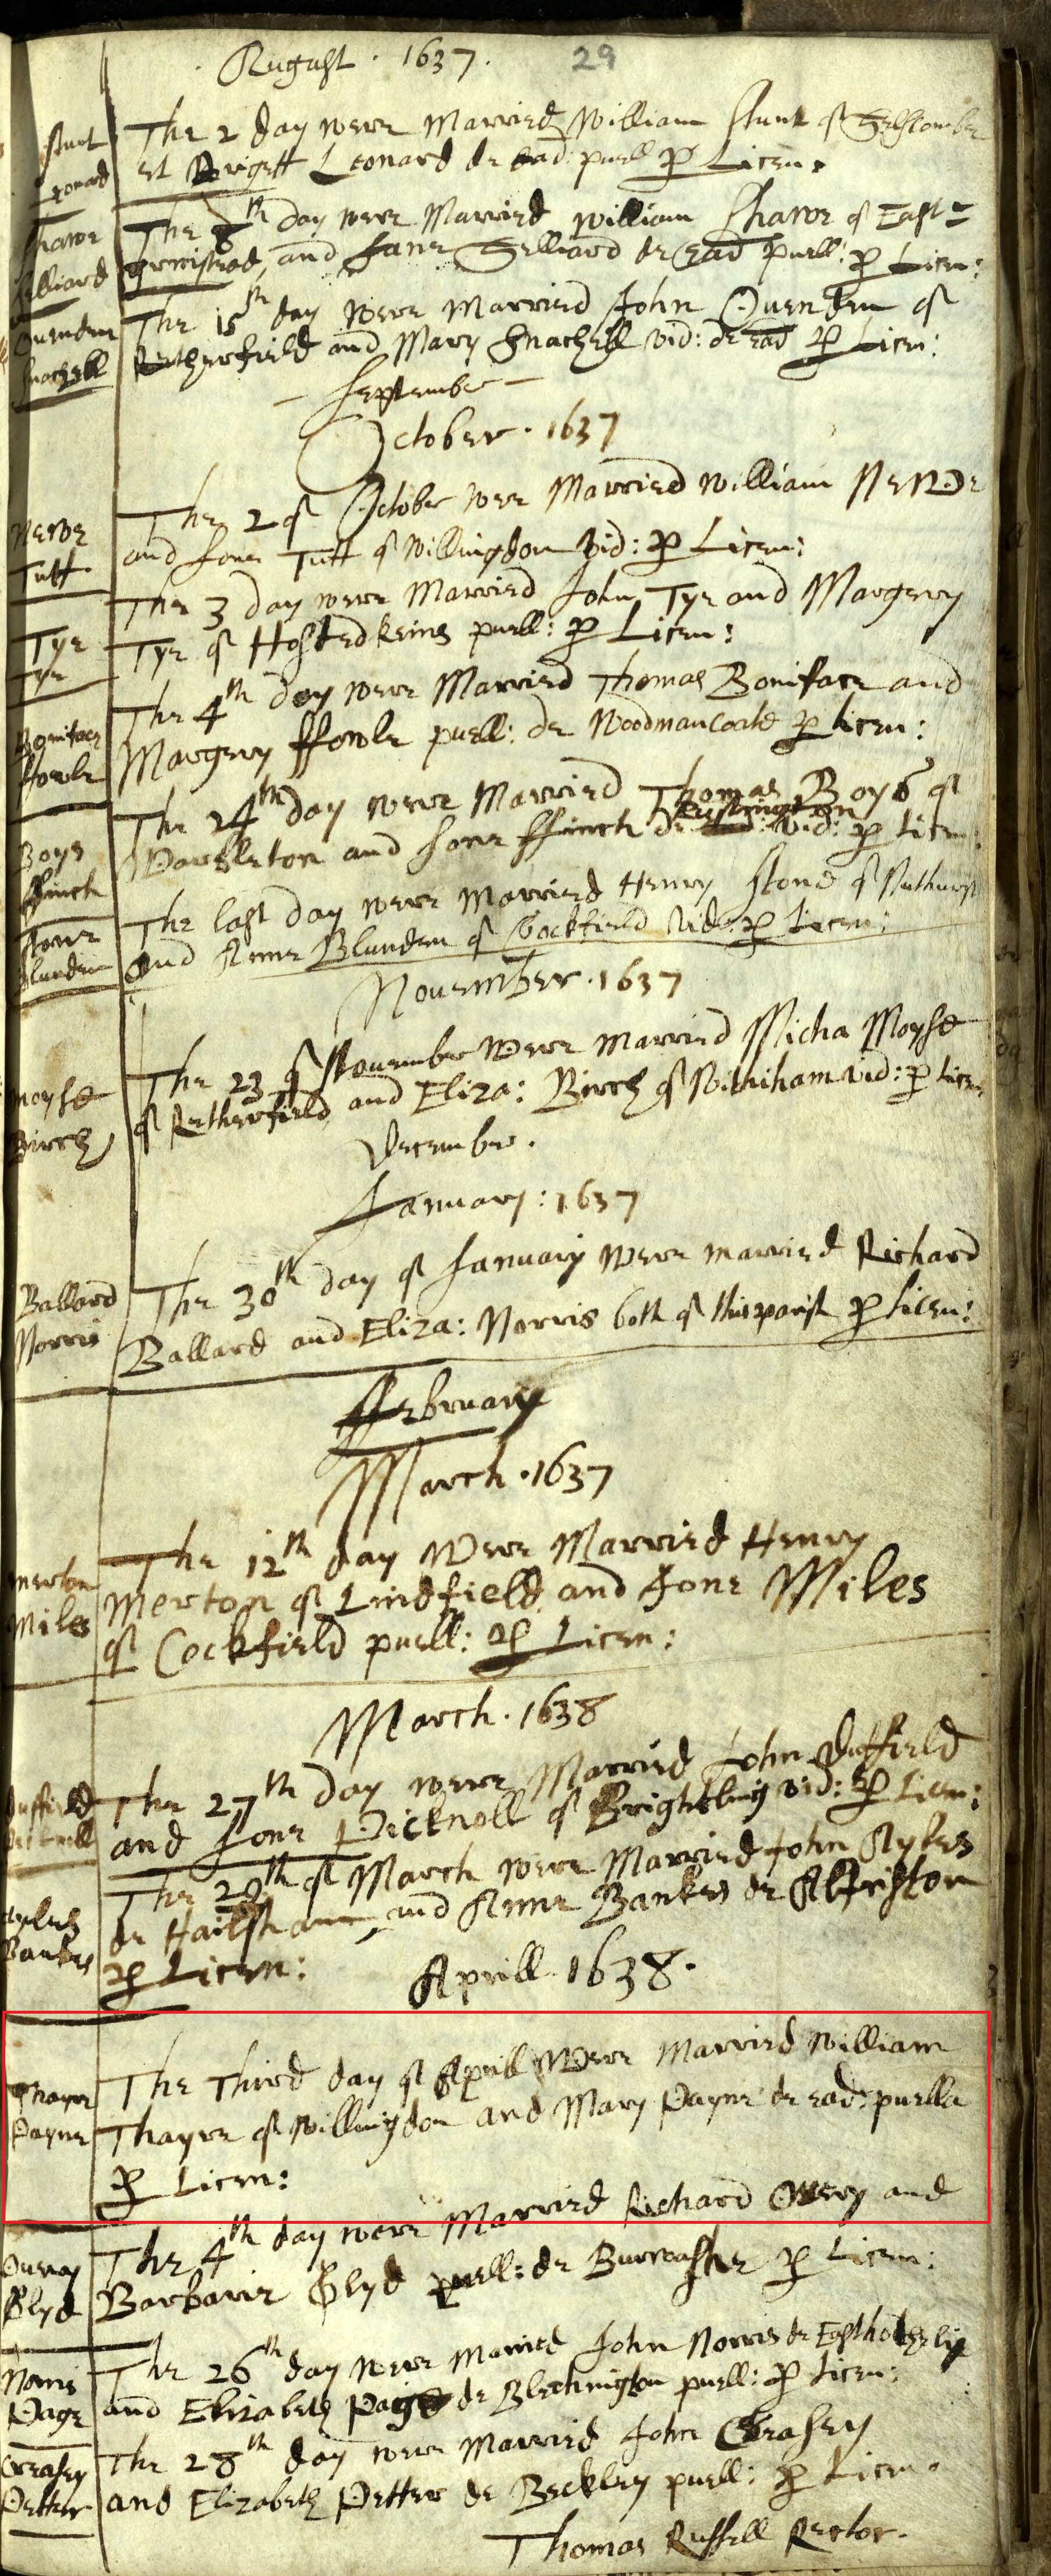 August . 1637.
29
Stunt
Leonard
The 2 day were Married William Stunt of Selscombe
et Brigett Leonard de ead: puell p Licen.
Sharpe
Selliard
The 8th day were Married William Sharpe of East=
grinsted, and Jane Selliard de ead puell: p Licen:
Quenden
Snachell
The 15th day were Married John Quenden of
Retherfield and Mary Snachell vid: de ead p Licen:
– September –
October . 1637
Newde
Tutt
The 2 of October wer Married William Newde
and Jone Tutt of Willingdon vid: p Licen:
Tye
Tye
The 3 day were Married John Tye and Margery
Tye of Hosted keins puell: p Licen:
Boniface
ffowle
The 4th day were Married Thomas Boniface and
Margery ffowle puell: de Woodmancoate p licen:
Boys
ffinch
The 24th day were Married Thomas Boys of
and Jone ffinch de vid: p licen:
Stone
Blunden
The last day were Married Henry Stone of Nuthurst
and Anne Blunden of Cockfield vid: p Licen:
November . 1637
Moyse
Birch
The 23 of November Were Married Micha Moyse
of Retherfield and Eliza: Birch of Withiham vid: p licen:
December .
January : 1637
Ballard
Norris
The 30th day of January Were married Richard
Ballard and Eliza: Norris both of this parish p licen:
ffebruary
March . 1637
Merton
Miles
The 12th day Were Married Henry
Merton of Lindfield and Jone Miles
of Cockfield puell: p Licen:
March . 1638
Duffield
Picknoll
The 27th day were Married John Duffield
and Jone Picknoll of Brightling vid: p licen:
Aykes
Bankes
The 29th of March were Married John Aykes
de Hailsham, and Anne Bankes de Alfriston
p Licen:
Aprill 1638.
Thayer
Payne
The Third day of Aprill Were Married William
Thayer of Willingdon and Mary Payne de ead: puella
p Licen:
Overy
Glyd
The 4th day were Married Richard Overy and
Barbarie Glyd puell: de Burwashe p Licen:
Norris
Page
The 26th day were Married John Norris de Easthothely
and Elizabeth Page de Blechington puell: p licen:
Creasey
Petter
The 28th day were Married John Creasey
and Elizabeth Petter de Beckley puell: p Licen.
Thomas Russell Rector.